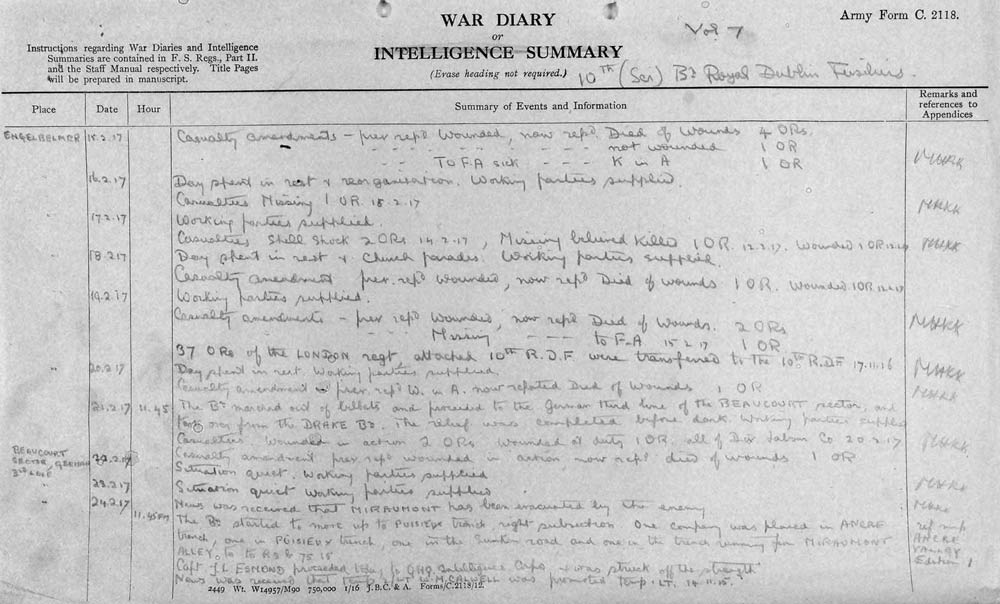 WAR DIARY
or
INTELLIGENCE SUMMARY
(Erase heading not required.)
Army Form C. 2118.
Vol 7
Instructions regarding War Diaries and Intelligence
Summaries are contained in F. S. Regs., Part II.
and the Staff Manual respectively. Title Pages
will be prepared in manuscript.
10th (Ser) Bn Royal Dublin Fusiliers.
Place Date Hour Summary of Events and Information Remarks and references to Appendices
ENGELBELMER 15.2.17 Casualty amendments – prev repd Wounded, now repd Died of Wounds 4 ORs.
- - - - - - not wounded 1 OR
To F-A sick - - - K in A 1 OR
16.2.17 Day spent in rest & reorganisation. Working parties supplied.
Casualties Missing 1 OR 15.2.17
17.2.17 Working parties supplied.
Casualties Shell Shock 2 ORs 14.2.17, Missing believed Killed 1 OR 12.2.17. Wounded 1 OR
" 18.2.17 Day spent in rest & Church parades. Working parties supplied.
Casualty amendment prev. repd wounded, now repd Died of wounds 1 OR. Wounded 1 OR
19.2.17 Working parties supplied.
Casualty amendments – prev repd Wounded, now repd Died of Wounds. 2 ORs
Missing - - - to F-A 15.2.17 1 OR
37 ORs of the LONDON regt, attached 10th R.D.F were transferred to the 10th R.D.F 17.11.16
" 20.2.17 Day spent in rest. Working parties supplied.
Casualty amendment prev repd W. in A. now repoted Died of Wounds 1 OR
" 21.2.17 11.45 The Bn marched out of billets and proceeded to the German third line of the BEAUCOURT sector, and
took over from the DRAKE Bn. The relief was completed before dark. Working parties supplied
Casualties Wounded in action 2 ORs Wounded at duty 1 OR, all of Div Labour Co 20.2.17
BEAUCOURT
SECTOR, GERMAN
3rd LINE
22.2.17 Casualty amendment prev repd wounded in action now repd died of wounds 1 OR
Situation quiet. Working parties supplied
" 23.2.17 Situation quiet Working parties supplied
" 24.2.17 News was received that MIRAUMONT has been evacuated by the enemy
11.45 PM The Bn started to move up to PUISIEUX trench, right subsection One company was placed in ANCRE
trench, one in PUISIEUX trench, one in the Sunken road and one in the trench running from MIRAUMONT
ALLEY, to R 8 b 75 15
Capt J.L ESMOND proceeded to GHQ Intelligence Corps & was struck off the strength
News was received that Temp 2/Lt W.M. CALWELL was promoted Temp. LT, 14.11.15.
ref map
ANCRE
VALLEY
Edition 1
2449 Wt. W14957/M90 750,000 1/16 J.B.C. & A. Forms/C.2118/12.